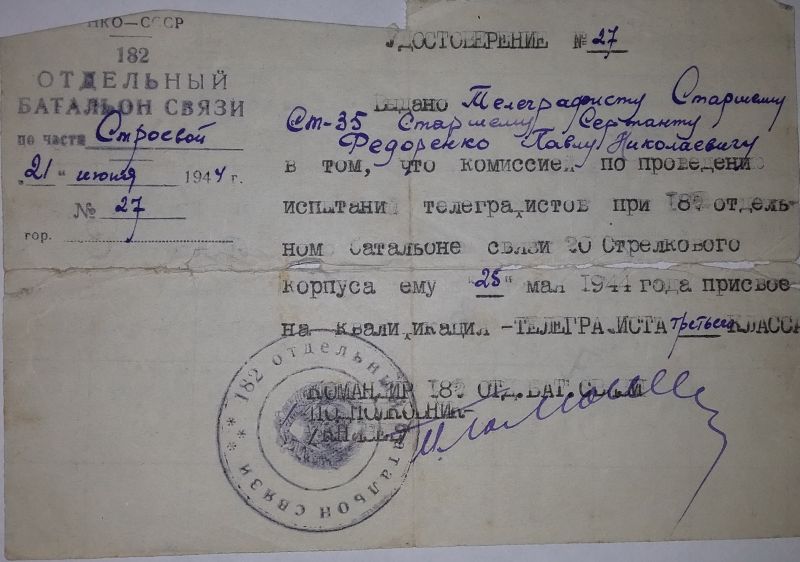 НКО—СССР
182
ОТДЕЛЬНЫЙ
БАТАЛЬОН СВЯЗИ
по части Строевой
"21" июня 1944 г.
№ 27
гор.
УДОСТОВЕРЕНИЕ № 27
Выдано Телеграфисту Старшему
Ст-35 Старшему Сержанту
Федоренко Павлу Николаевичу
в том, что комиссией по проведению
испытаний телеграфистов при 182 отдель-
ном батальоне связи 20 Стрелкового
корпуса ему "25" мая 1944 года присвое-
на квалификация -ТЕЛЕГРАФИСТА третьего КЛАССА
КОМАНДИР 182 ОТД. БАТ. СВЯЗИ
ПОДПОЛКОВНИК-
182 ОТДЕЛЬНЫЙ БАТАЛЬОН СВЯЗИ **